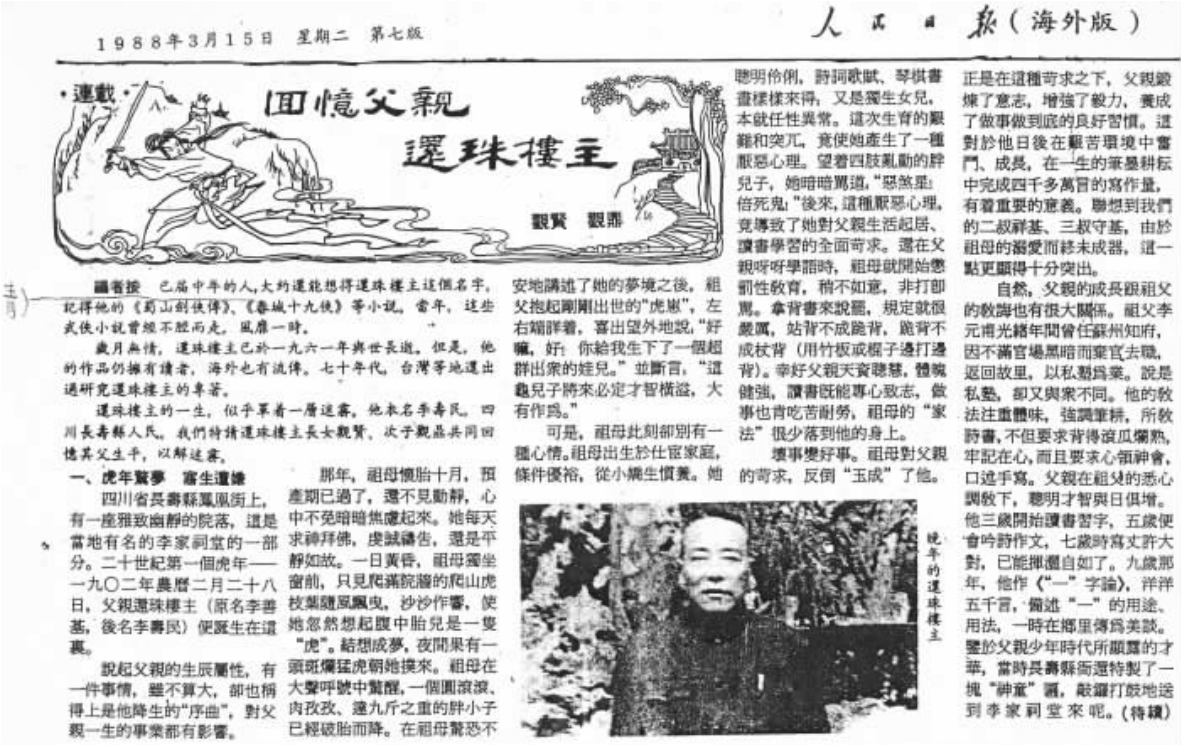 1988年3月15日 星期二 第七版
人民日报(海外版)
·連載·
回憶父親
還珠樓主
觀賢 觀鼎
編者按 已屆中年的人,大約還能想得還珠樓主這個名字,
記得他的《蜀山劍俠傳》、《春城十九俠》等小說。當年,這些
武俠小說曾經不脛而走,風靡一時。
歲月無情,還珠樓主已於一九六一年與世長逝。但是,他
的作品仍擁有讀者,海外也有流傳。七十年代,台灣等地還出
過研究還珠樓主的專著。
還珠樓主的一生,似乎罩着一層迷霧。他本名李壽民,四
川長壽縣人民。我們特請還珠樓主長女觀賢、次子觀鼎共同回
憶其父生平,以解迷霧。
一、虎年驚夢 寤生遭嫌
四川省長壽縣鳳凰街上,
有一座雅致幽靜的院落,這是
當地有名的李家祠堂的一部
分。二十世紀第一個虎年——
一九〇二年農曆二月二十八
日,父親還珠樓主(原名李善
基,後名李壽民)便誕生在這
裏。
說起父親的生辰屬性,有
一件事情,雖不算大,卻也稱
得上是他降生的“序曲”,對父
親一生的事業都有影響。
那年,祖母懷胎十月,預
產期已過了,還不見動靜,心
中不免暗暗焦慮起來。她每天
求神拜佛,虔誠禱告,還是平
靜如故。一日黃昏,祖母獨坐
窗前,只見爬滿院牆的爬山虎
枝葉隨風飄曳,沙沙作響,使
她忽然想起腹中胎兒是一隻
“虎”。結想成夢,夜間果有一
頭斑斕猛虎朝她撲來。祖母在
大聲呼號中驚醒,一個圓滾滾、
肉孜孜、達九斤之重的胖小子
已經破胎而降。在祖母驚恐不
安地講述了她的夢境之後,祖
父抱起剛剛出世的“虎崽”,左
右端詳着,喜出望外地說,“好
嘛,好!你給我生下了一個超
群出衆的娃兒。”並斷言,“這
龜兒子將來必定才智橫溢,大
有作爲。”
可是,祖母此刻卻別有一
種心情。祖母出生於仕宦家庭,
條件優裕,從小嬌生慣養。她
聰明伶俐,詩詞歌賦、琴棋書
畫樣樣來得,又是獨生女兒,
本就任性異常。這次生育的艱
難和突兀,竟使她產生了一種
厭惡心理。望着四肢亂動的胖
兒子,她暗暗罵道,“惡煞星!
倍死鬼!”後來,這種厭惡心理,
竟導致了她對父親生活起居、
讀書學習的全面苛求。還在父
親呀呀學語時,祖母就開始懲
罰性教育,稍不如意,非打即
罵。拿背書來說罷,規定就很
嚴厲,站背不成跪背,跪背不
成杖背(用竹板或棍子邊打邊
背)。幸好父親天資聰慧,體魄
健強,讀書既能專心致志,做
事也肯吃苦耐勞,祖母的“家
法”很少落到他的身上。
壞事變好事。祖母對父親
的苛求,反倒“玉成”了他。
正是在這種苛求之下,父親鍛
煉了意志,增強了毅力,養成
了做事做到底的良好習慣。這
對於他日後在艱苦環境中奮
鬥、成長,在一生的筆墨耕耘
中完成四千多萬言的寫作量,
有着重要的意義。聯想到我們
的二叔祥基、三叔守基,由於
祖母的溺愛而終未成器,這一
點更顯得十分突出。
自然,父親的成長跟祖父
的敎誨也有很大關係。祖父李
元甫光緒年間曾任蘇州知府,
因不滿官場黑暗而棄官去職,
返回故里,以私塾爲業。說是
私塾,卻又與衆不同。他的敎
法注重體味,強調筆耕,所敎
詩書,不但要求背得滾瓜爛熟,
牢記在心,而且要求心領神會,
口述手寫。父親在祖父的悉心
調敎下,聰明才智與日俱增。
他三歲開始讀書習字,五歲便
會吟詩作文,七歲時寫丈許大
對,已能揮灑自如了。九歲那
年,他作《“一”字論》,洋洋
五千言,備述“一”的用途、
用法,一時在鄉里傳爲美談。
鑒於父親少年時代所顯露的才
華,當時長壽縣衙還特製了一
塊“神童”匾,敲鑼打鼓地送
到李家祠堂來呢。(待續)
晚年的還珠樓主